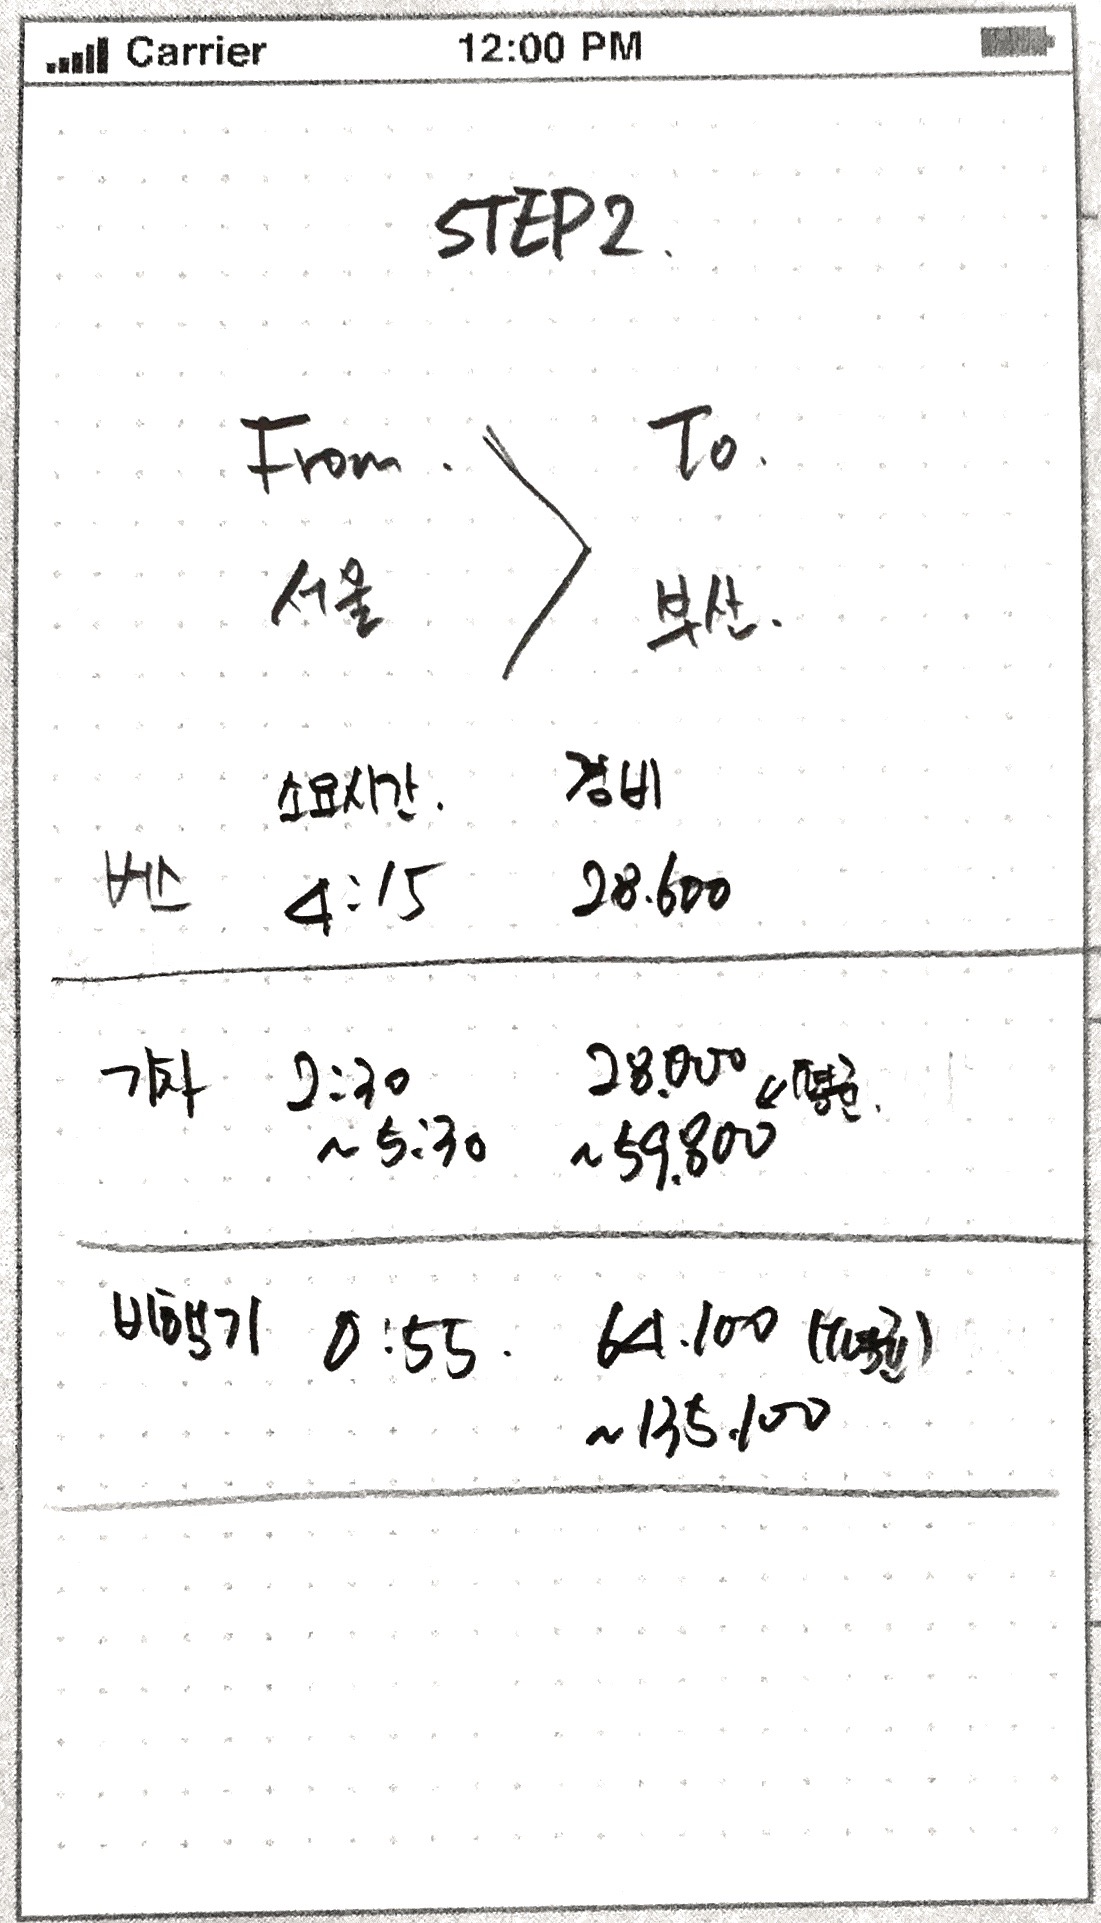 Carrier 12:00 PM
STEP2.
From. > To.
서울 부산.
소요시간. 경비
버스 4:15 28.600
기차 2:30 28.000
~5:30 ~59.800
비행기 0:55. 64.100
~135.100